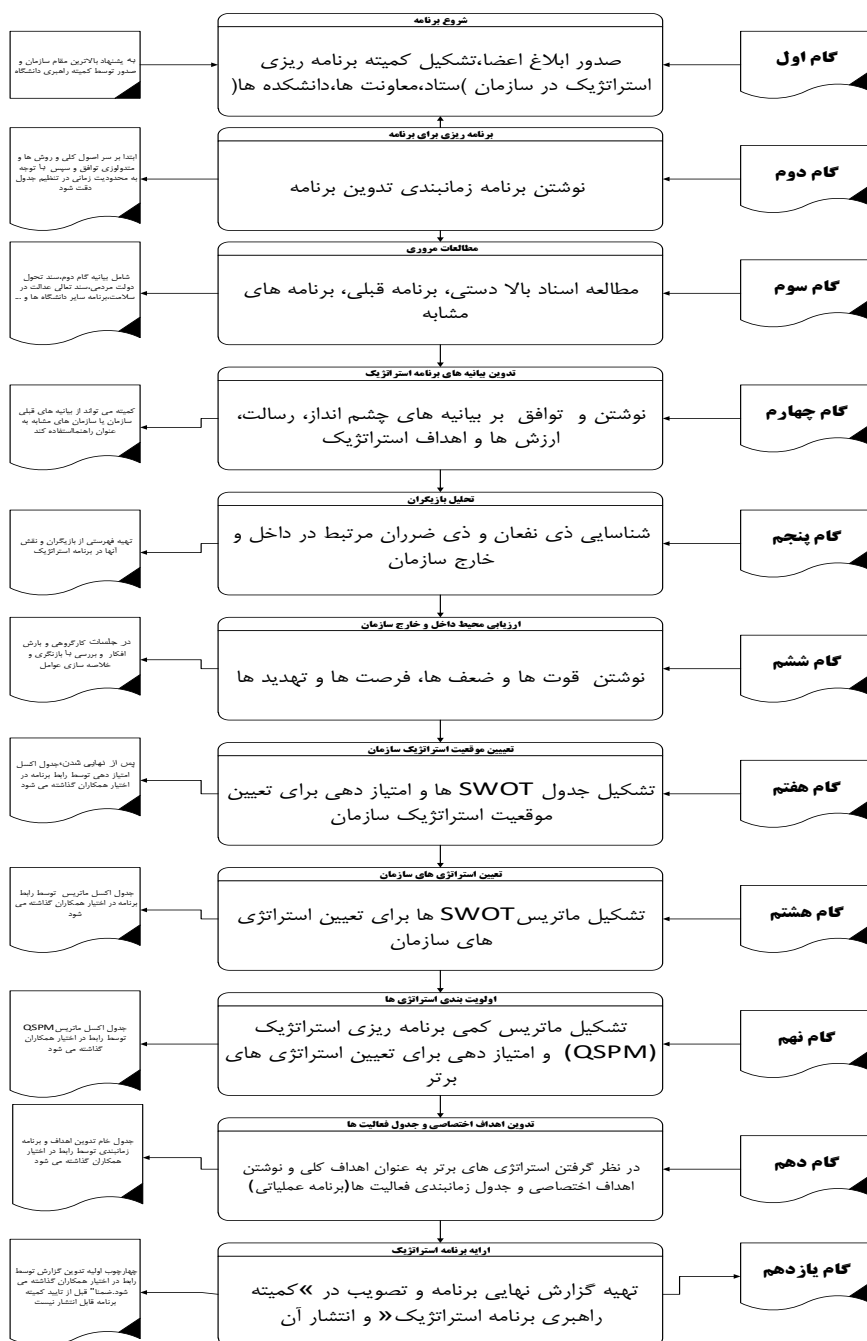 شروع برنامه
گام اول
صدور ابلاغ اعضا،تشکیل کمیته برنامه ریزی
استراتژیک در سازمان )ستاد،معاونت ها،دانشکده ها(
به پشنهاد بالاترین مقام سازمان و
صدور توسط کمیته راهبری دانشگاه
برنامه ریزی برای برنامه
گام دوم
نوشتن برنامه زمانبندی تدوین برنامه
ابتدا بر سر اصول کلی و روش ها و
متدولوژی توافق و سپس با توجه
به محدودیت زمانی در تنظیم جدول
دقت شود
مطالعات مروری
گام سوم
مطالعه اسناد بالا دستی، برنامه قبلی، برنامه های
مشابه
شامل بیانیه گام دوم،سند تحول
دولت مردمی،سند تعالی عدالت در
سلامت،برنامه سایر دانشگاه ها و ...
تدوین بیانیه های برنامه استراتژیک
گام چهارم
نوشتن و توافق بر بیانیه های چشم انداز، رسالت،
ارزش ها و اهداف استراتژیک
کمیته می تواند از بیانیه های قبلی
سازمان یا سازمان های مشابه به
عنوان راهنمااستفاده کند
تحلیل بازیگران
گام پنجم
شناسایی ذی نفعان و ذی ضرران مرتبط در داخل و
خارج سازمان
تهیه فهرستی از بازیگران و نقش
آنها در برنامه استراتژیک
ارزیابی محیط داخل و خارج سازمان
گام ششم
نوشتن قوت ها و ضعف ها، فرصت ها و تهدید ها
در جلسات کارگروهی و بارش
افکار و بررسی با بازنگری و
خلاصه سازی عوامل
تعییین موقعیت استراتژیک سازمان
گام هفتم
تشکیل جدول SWOT ها و امتیاز دهی برای تعیین
موقعیت استراتژیک سازمان
پس از نهایی شدن،جدول اکسل
امتیاز دهی توسط رابط برنامه در
اختیار همکاران گذاشته می شود
تعیین استراتژی های سازمان
گام هشتم
تشکیل ماتریسSWOT ها برای تعیین استراتژی
های سازمان
جدول اکسل ماتریس توسط رابط
برنامه در اختیار همکاران گذاشته می
شود
اولویت بندی استراتژی ها
گام نهم
تشکیل ماتریس کمی برنامه ریزی استراتژیک
(QSPM) و امتیاز دهی برای تعیین استراتژی های
برتر
جدول اکسل ماتریسQSPM
توسط رابط در اختیار همکاران
گذاشته می شود
تدوین اهداف اختصاصی و جدول فعالیت ها
گام دهم
در نظر گرفتن استراتژی های برتر به عنوان اهداف کلی و نوشتن
اهداف اختصاصی و جدول زمانبندی فعالیت ها(برنامه عملیاتی)
جدول خام تدوین اهداف و برنامه
زمانبندی توسط رابط در اختیار
همکاران گذاشته می شود
ارایه برنامه استراتژیک
گام یازدهم
تهیه گزارش نهایی برنامه و تصویب در »کمیته
راهبری برنامه استراتژیک« و انتشار آن
چهارچوب اولیه تدوین گزارش توسط
رابط در اختیار همکاران گذاشته می
شود.ضمنا" قبل از تایید کمیته
برنامه قابل انتشار نیست